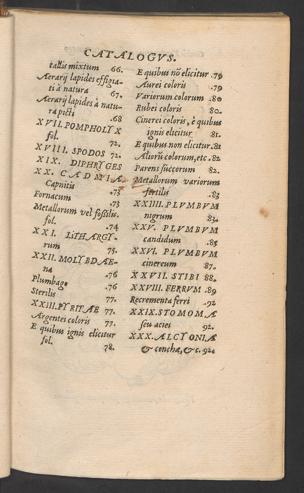 CATALOGVS.
tallis mixtum 66.
Aerarij lapides effigia-
ti à natura 67.
Aerarij lapides à natu-
ra picti .68
XVII. POMPHOLYX
fol. 72.
XVIII. SPODOS 72.
XIX. DIPHRYGES
XX. CADMIA
Capnitis .73
Fornacum .73
Metallorum vel fossilis.
fol. .74
XXI. LITHARGY-
rum 75.
XXII. MOLYBDAE-
na .76
Plumbago .76
Sterilis .76
XXIII. PYRITAE 77.
Argentei coloris 77.
E quibus ignis elicitur
fol. 78.
E quibus nõ elicitur .79
Aurei coloris .79
Variorum colorum .80
Rubei coloris 80.
Cinerei coloris, è quibus
ignis elicitur 81.
E quibus non elicitur .81
Aliorũ colorum, etc. 82
Parens succorum 82.
Metallorum variorum
fertilis .83
XXIIII. PLVMBVM
nigrum 83.
XXV. PLVMBVM
candidum .85
XXVI. PLVMBVM
cinereum 87.
XXVII. STIBI 88.
XXVIII. FERRVM .89
Recrementa ferri .92
XXIX. STOMOMA
seu aciei 92.
XXX. ALCYONIAE
& conchæ, & c. 92.